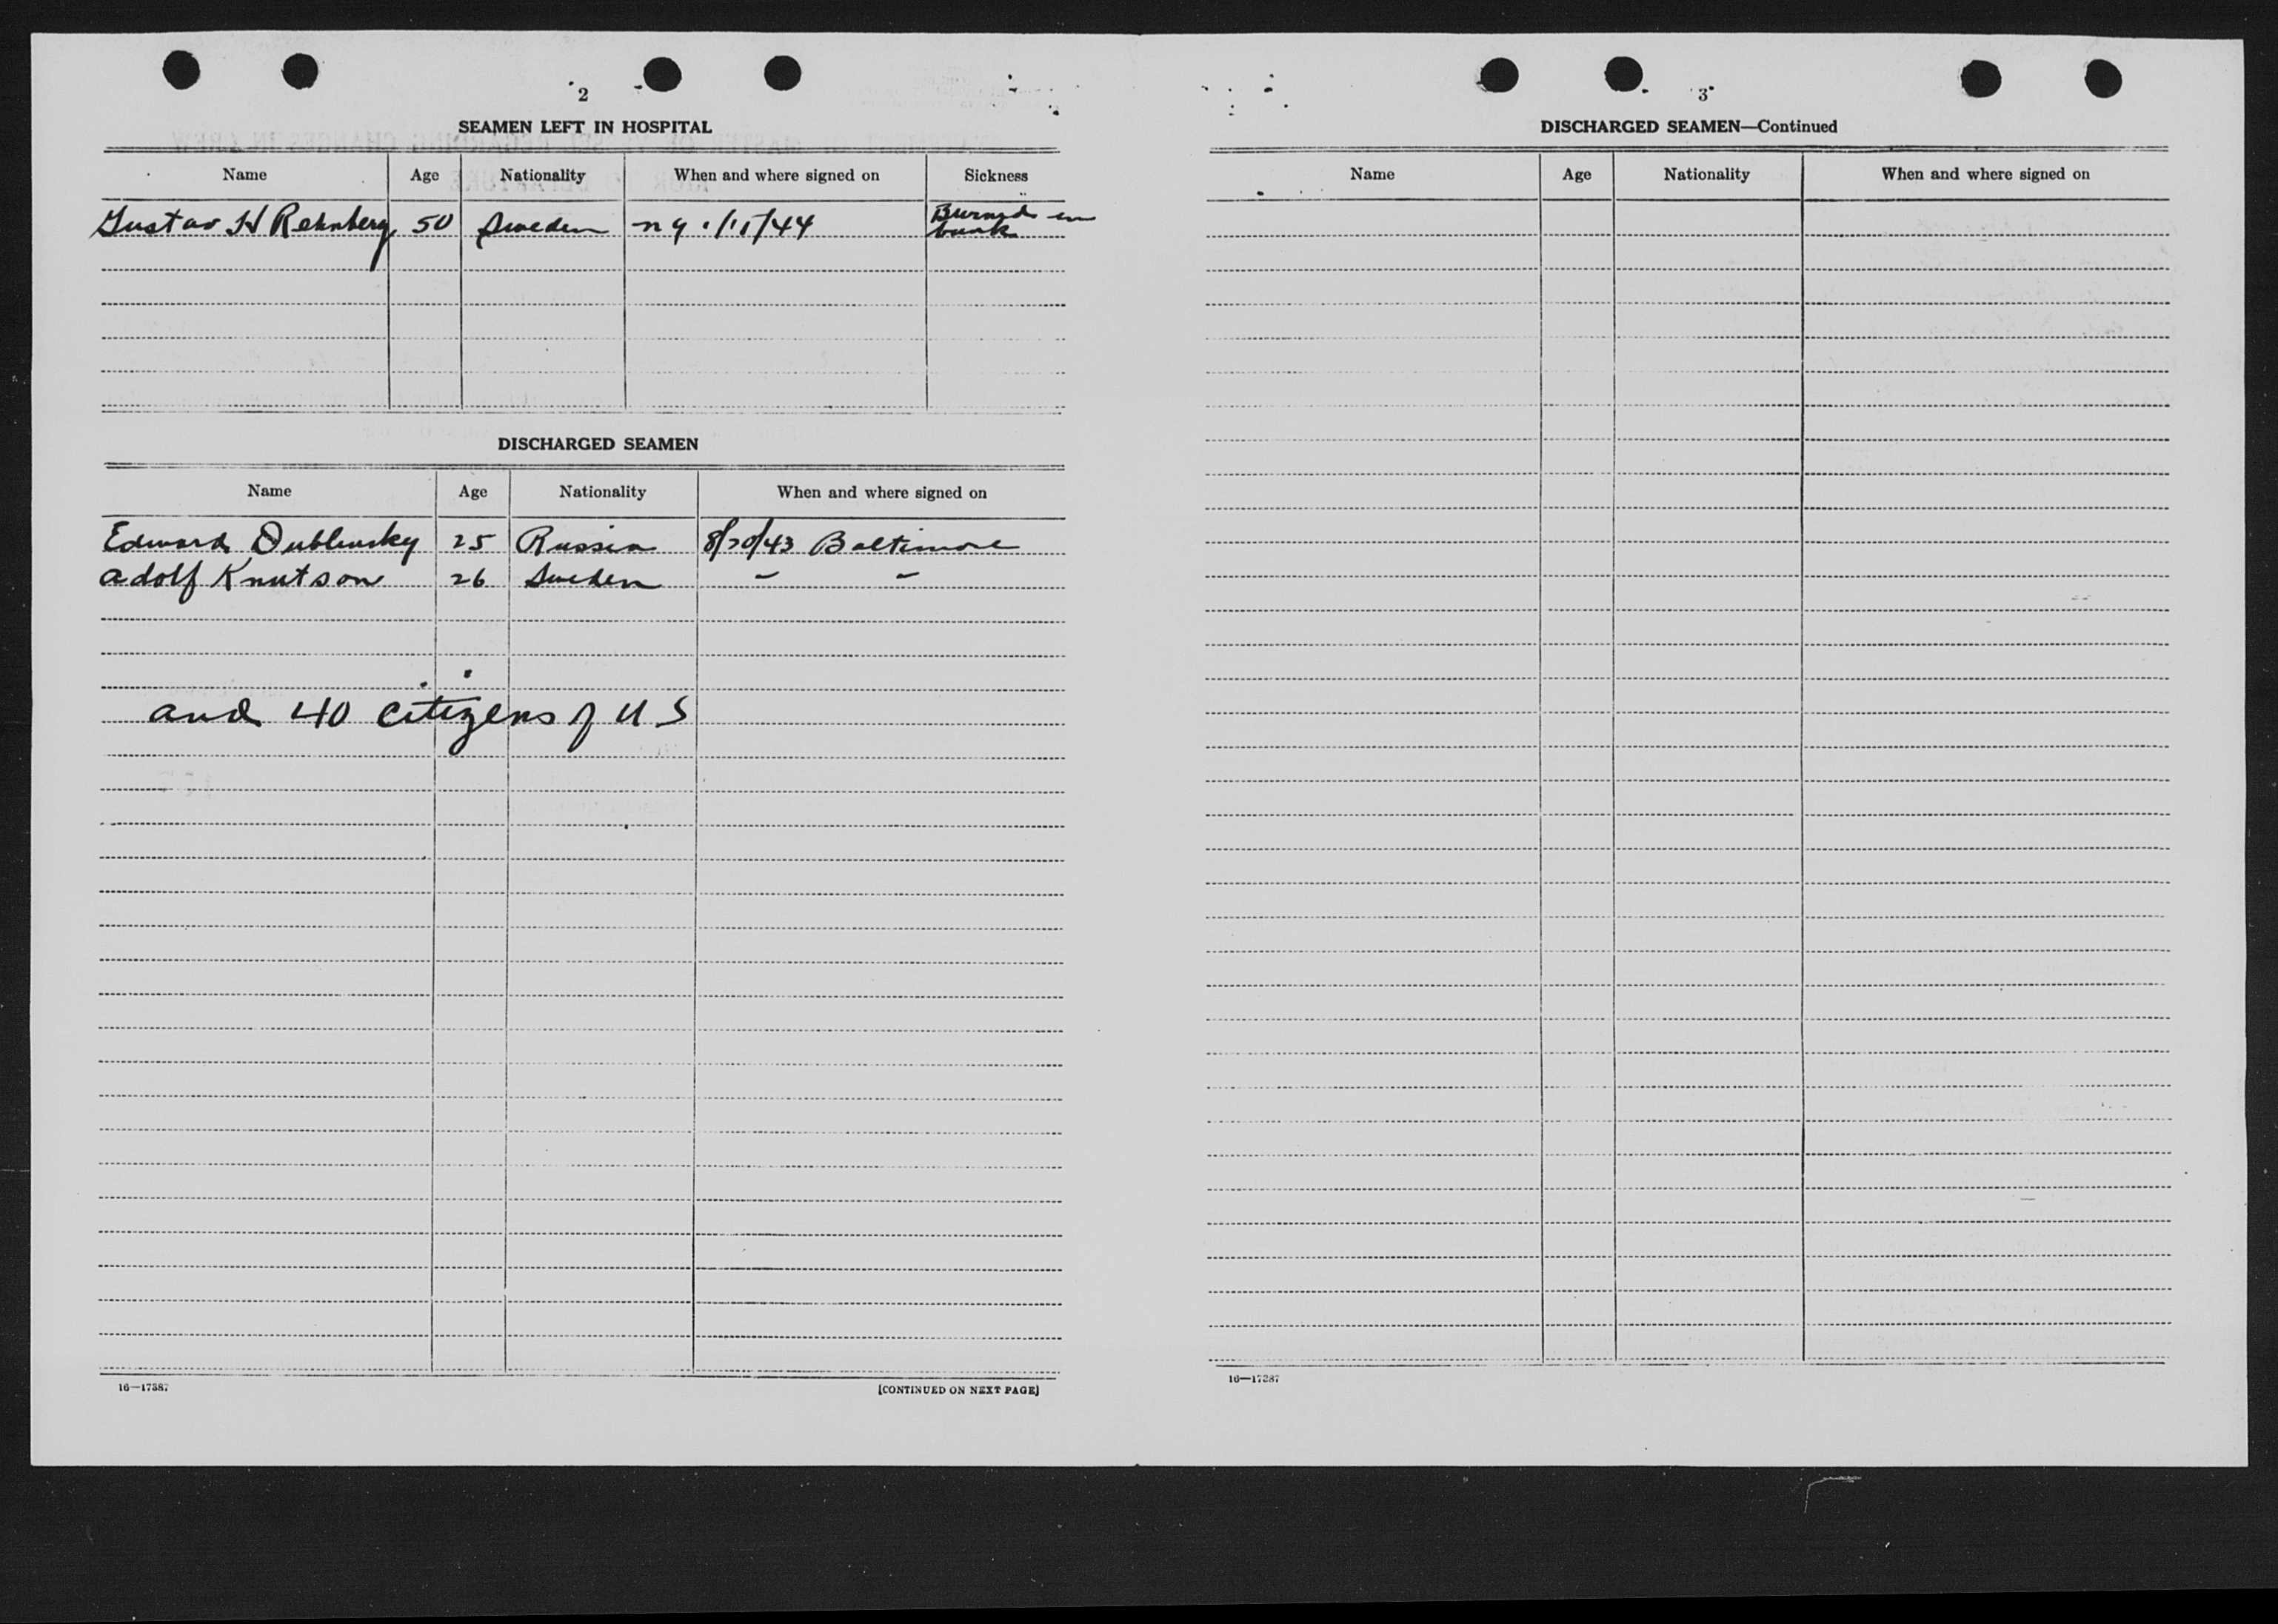 2
SEAMEN LEFT IN HOSPITAL
Name Age Nationality When and where signed on Sickness
Gustav H Rehnberg 50 Sweden n y 1/11/44 Burned in
bunk
DISCHARGED SEAMEN
Name Age Nationality When and where signed on
Edward Dublinsky 25 Russia 8/20/43 Baltimore
Adolf Knutson 26 Sweden " "
and 40 citizens of U S
16—17387
[CONTINUED ON NEXT PAGE]
3
DISCHARGED SEAMEN—Continued
Name Age Nationality When and where signed on
16—17387